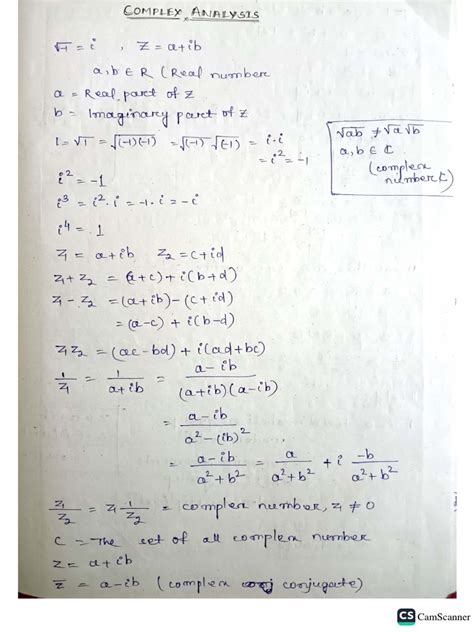 COMPLEX ANALYSIS
√-1 = i , Z = a+ib
a, b ∈ R (Real number
a = Real part of Z
b = Imaginary part of Z
1 = √1 = √(-1)(-1) = √(-1) √(-1) = i·i
= i² = -1
√ab ≠ √a√b
a, b ∈ ℂ
(complex
number ℂ)
i² = -1
i³ = i²·i = -1·i = -i
i⁴ = 1
Z₁ = a+ib Z₂ = c+id
Z₁+Z₂ = (a+c)+i(b+d)
Z₁-Z₂ = (a+ib)-(c+id)
= (a-c) + i(b-d)
Z₁Z₂ = (ac-bd)+i(ad+bc)
1/Z₁ = 1/(a+ib) = (a-ib)/((a+ib)(a-ib))
= (a-ib)/(a²-(ib)²)
= (a-ib)/(a²+b²) = a/(a²+b²) + i (-b)/(a²+b²)
Z₁/Z₂ = Z₁ 1/Z₂ = complex number, Z₁ ≠ 0
C = The set of all complex number
Z = a+ib
Z̅ = a-ib (complex conjugate)
CS CamScanner